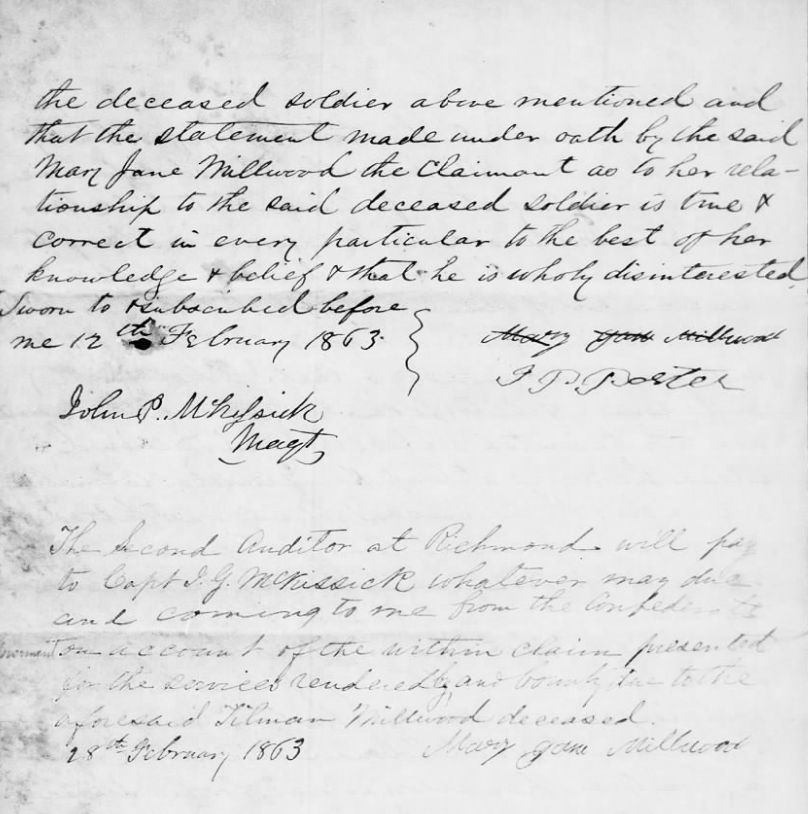 the deceased soldier above mentioned and
that the statement made under oath by the said
Mary Jane Millwood the Claimant as to her rela-
tionship to the said deceased soldier is true &
correct in every particular to the best of her
knowledge & belief & that he is wholy disinterested
Sworn to & subscribed before
me 12th February 1863.
Mary Jane Millwood
J. P. Porter
John P. McKissick
Magt
The Second Auditor at Richmond will pay
to Capt I. G. McKissick whatever may due
and coming to me from the Confederate
on account of the within claim presented
for the services rendered by and bounty due to the
aforesaid Tilman Millwood deceased.
28th February 1863
Mary Jane Millwood